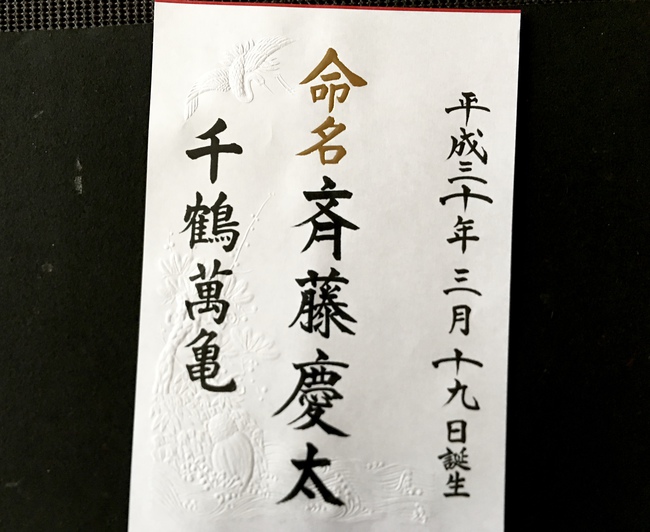 平成三十年三月十九日誕生
命名 斉藤慶太
千鶴萬亀